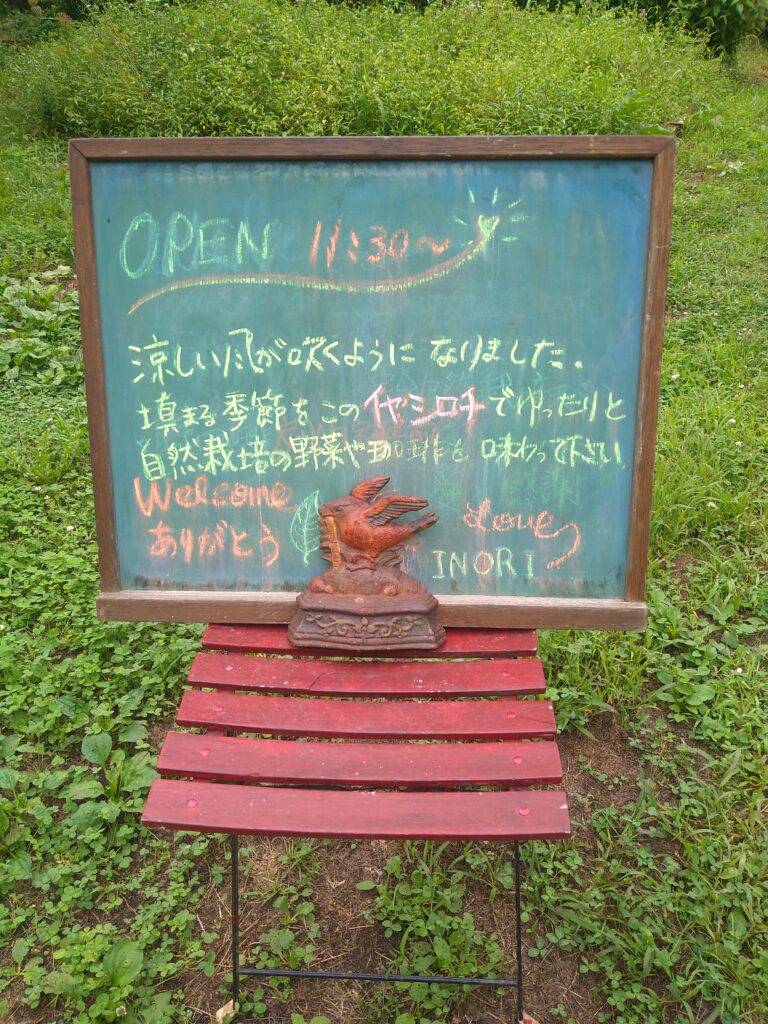 OPEN 11:30〜
涼しい風が吹くように なりました.
填まる季節をこのイヤシロチでゆったりと
自然栽培の野菜や 味わって下さい
Welcome
ありがとう
Love
INORI